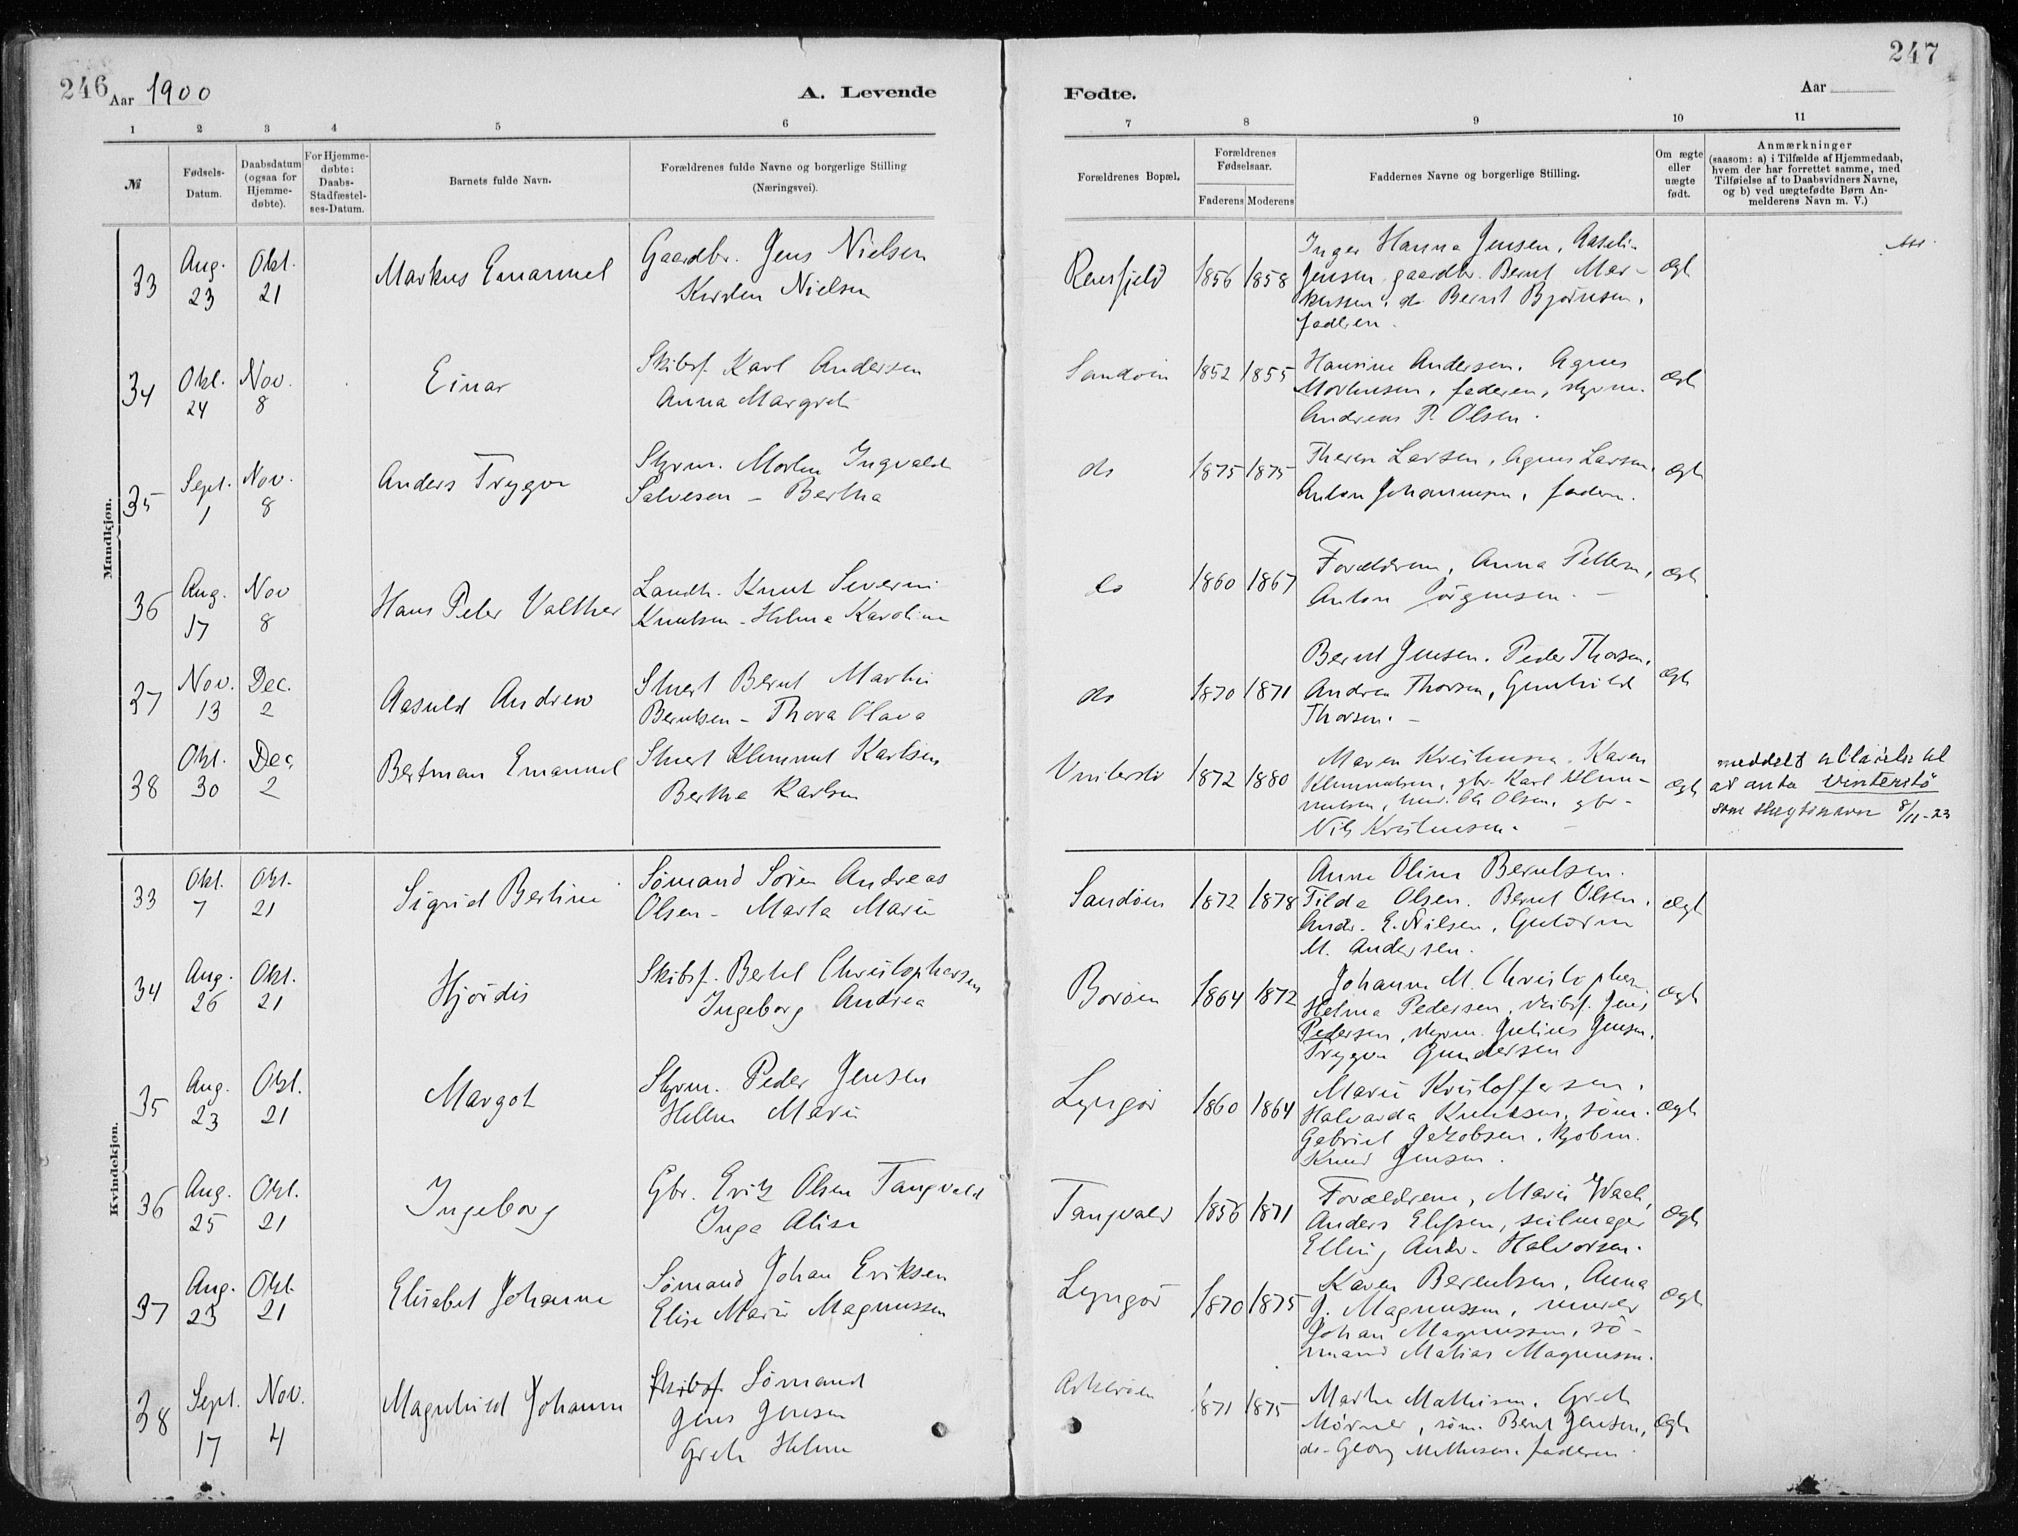 246 Aar 1900
A. Levende
Fødte.
Aar
247
1 2 3 4 5 6 7 8 9 10 11
№
Fødsels-
Datum.
Daabsdatum
(ogsaa for
Hjemme-
døbte).
For Hjemme-
døbte:
Daabs-
Stadfæstel-
ses-Datum.
Barnets fulde Navn.
Forældrenes fulde Navne og borgerlige Stilling
(Næringsvei).
Forældrenes Bopæl.
Forældrenes
Fødselsaar.
Faderens Moderens
Faddernes Navne og borgerlige Stilling.
Om ægte
eller
uægte
født.
Anmærkninger
(saasom: a) i Tilfælde af Hjemmedaab,
hvem der har forrettet samme, med
Tilføielse af to Daabsvidners Navne,
og b) ved uægtefødte Børn An-
melderens Navn m. V.)
Mandkjøn.
33 Aug. 23 Okt. 21 Markus Emanuel
Gaardbr. Jens Nielsen
Kirsten Nielsen
1856 1858
Inger Hanna Jensen,
Jensen, gaardbr. Bernt Mar-
kussen, do Bernt Bjørnsen,
faderen.
Ægt
34 Okt. 24 Nov. 8 Einar
Skibsf. Karl Andersen
Anna Margret
Sandøen 1852 1855
Hansine Andersen, Agnes
Mortensen, faderen, styrm.
Andreas P. Olsen.
Ægt
35 Sept. 1 Nov. 8 Anders Trygve
Styrm. Morten Ingvald
Salvesen – Bertha
do 1875 1875
Therese Larsen, Agnes Larsen,
Anton Johannesen, faderen.
Ægt
36 Aug. 17 Nov 8 Hans Peter Valther
Landh. Knut Severin
Knutsen – Helma Karoline
do 1860 1867
Forældrene, Anna Pettersen,
Anton Jörgensen. –
Ægt
37 Nov. 13 Dec. 2 Aasuld Andrew
Stuert Bernt Martin
Berntsen – Thora Olava
do 1870 1871
Bernt Jensen. Peder Thorsen,
Andrea Thorsen, Gunhild
Thorsen. –
Ægt
38 Okt. 30 Dec. 2 Bertman Emanuel
Stuert Klemmet Karlsen
Berthe Karlsen
Vinterstø 1872 1880
Maren Kristensen, Karen
Klemmetsen, gbr. Karl Klem-
metsen, Ole Olsen, gbr.
Nils Kristensen.
Ægt
meddelt til
at anta Vinterstø
som slægtsnavn 8/11-23
Kvindekjøn.
33 Okt. 7 Okt. 21 Sigrid Bertine
Sømand Søren Andreas
Olsen – Marta Marie
Sandøen 1872 1878
Anne Oline Berntsen.
Tilda Olsen. Bernt Olsen,
Andr. E. Nilsen, Guttorm
M. Andersen.
Ægt
34 Aug. 26 Okt. 21 Hjørdis
Skibsf. Bertel Christophersen
Ingeborg Andrea
Borøen 1864 1872
Johanne M. Christopher
Helma Pedersen, skibsf. Jens
Pedersen, styrm. Julius Jensen,
Trygve Gundersen
Ægt
35 Aug. 23 Okt. 21 Margot
Styrm. Peder Jensen
Helene Marie
Lyngør 1860 1864
Marie Kristoffersen,
Halvarda Knudsen, søm.
Gabriel Jakobsen, kjøbm.
Knud Jensen.
Ægt
36 Aug. 25 Okt. 21 Ingeborg
Gbr. Erik Olsen Tangvald
Inga Alise
Tangvald 1856 1871
Forældrene, Marie
Anders Elefsen, seilmager
Elling Andr. Halvorsen.
Ægt
37 Aug. 23 Okt. 21 Elisabet Johanne
Sømand Johan Eriksen
Elise Marie Magnussen
Lyngør 1870 1875
Karen Berentsen, Anna
J. Magnussen, murer
Johan Magnussen, sø-
mand Matias Magnussen.
Ægt
38 Sept. 17 Nov. 4 Magnhild Johanne
Skibsf. Sømand
Jens Jensen
Grete Helene
Askerøen 1871 1875
Marthe Mathisen, Grete
Mörner, søm. Bernt Jensen,
do. Georg Mathisen, faderen.
Ægt